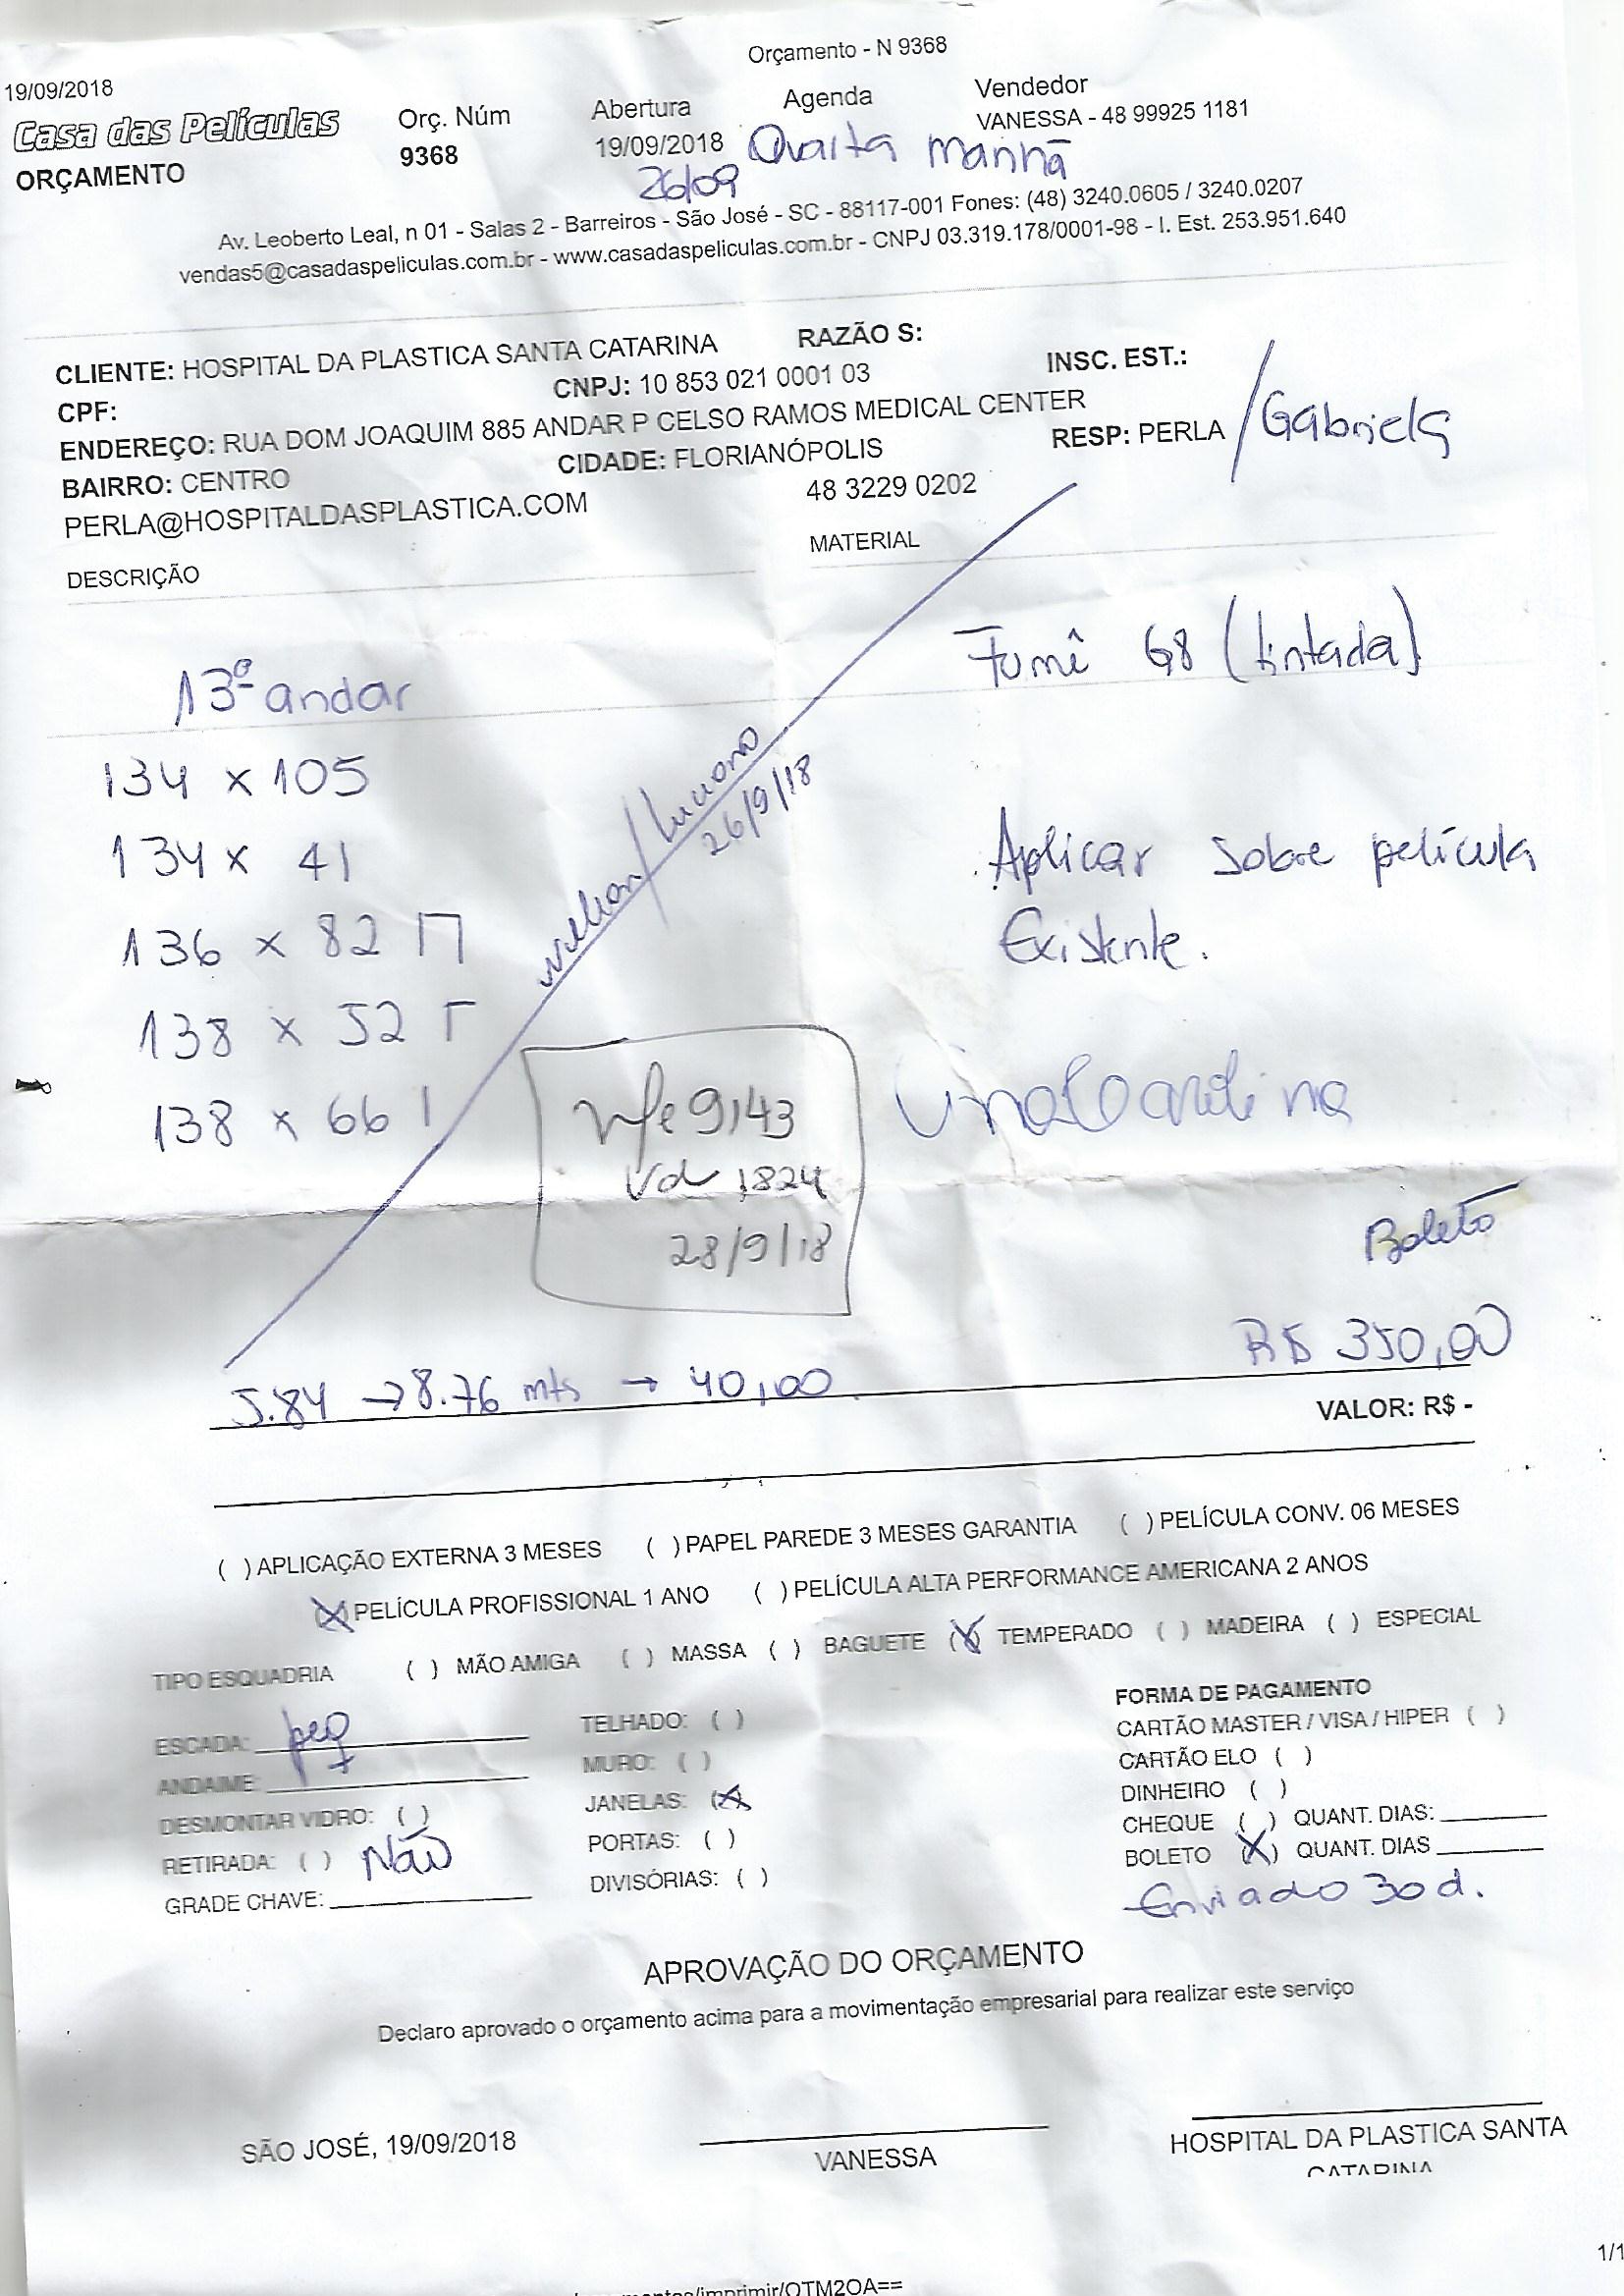 Orçamento - N 9368
19/09/2018
Casa das Películas
ORÇAMENTO
Orç. Núm
9368
Abertura
19/09/2018
26/09
Agenda
Quarta manhã
Vendedor
VANESSA - 48 99925 1181
Av. Leoberto Leal, n 01 - Salas 2 - Barreiros - São José - SC - 88117-001 Fones: (48) 3240.0605 / 3240.0207
vendas5@casadaspeliculas.com.br - www.casadaspeliculas.com.br - CNPJ 03.319.178/0001-98 - I. Est. 253.951.640
CLIENTE: HOSPITAL DA PLASTICA SANTA CATARINA RAZÃO S:
CPF: CNPJ: 10 853 021 0001 03 INSC. EST.:
ENDEREÇO: RUA DOM JOAQUIM 885 ANDAR P CELSO RAMOS MEDICAL CENTER
BAIRRO: CENTRO CIDADE: FLORIANÓPOLIS RESP: PERLA / Gabriela
PERLA@HOSPITALDASPLASTICA.COM 48 3229 0202
DESCRIÇÃO MATERIAL
13º andar
Fumê G8 (tintada)
134 x 105
134 x 41
136 x 82
138 x 52
138 x 66
/ Luciano
26/9/18
Aplicar sobre película
Existente.
Nfe 9143
Vd 1824
28/9/18
Boleto
R$ 350,00
5.84 → 8.76 mts → 40,00
VALOR: R$ -
( ) APLICAÇÃO EXTERNA 3 MESES ( ) PAPEL PAREDE 3 MESES GARANTIA ( ) PELÍCULA CONV. 06 MESES
(X) PELÍCULA PROFISSIONAL 1 ANO ( ) PELÍCULA ALTA PERFORMANCE AMERICANA 2 ANOS
TIPO ESQUADRIA ( ) MÃO AMIGA ( ) MASSA ( ) BAGUETE (X) TEMPERADO ( ) MADEIRA ( ) ESPECIAL
ESCADA: peq
ANDAIME:
DESMONTAR VIDRO: ( )
RETIRADA: ( ) Não
GRADE CHAVE:
TELHADO: ( )
MURO: ( )
JANELAS: (X)
PORTAS: ( )
DIVISÓRIAS: ( )
FORMA DE PAGAMENTO
CARTÃO MASTER / VISA / HIPER ( )
CARTÃO ELO ( )
DINHEIRO ( )
CHEQUE ( ) QUANT. DIAS:
BOLETO (X) QUANT. DIAS
Enviado 30 d.
APROVAÇÃO DO ORÇAMENTO
Declaro aprovado o orçamento acima para a movimentação empresarial para realizar este serviço
SÃO JOSÉ, 19/09/2018
VANESSA
HOSPITAL DA PLASTICA SANTA
CATARINA
1/1
/imprimir/OTM2OA==